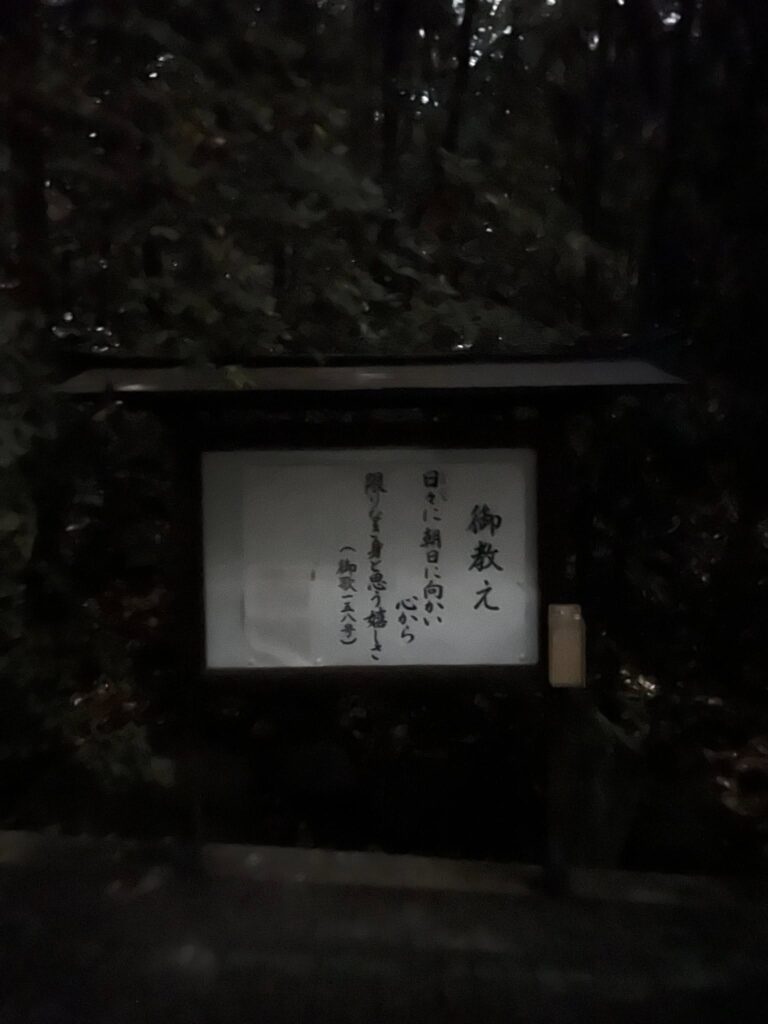 御教え
日々に朝日に向かい
心から
限りなき身と思う嬉しさ
(御歌一五八号)